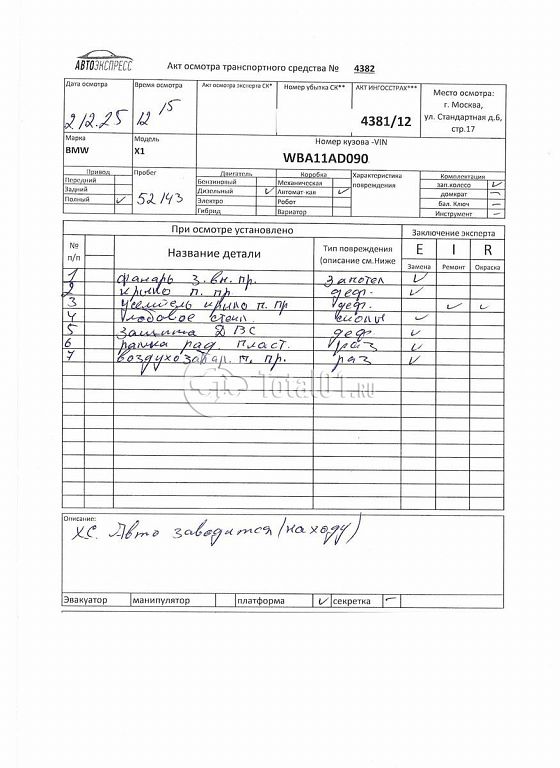 АВТОЭКСПРЕСС
Акт осмотра транспортного средства № 4382
Дата осмотра Время осмотра Акт осмотра эксперта СК* Номер убытка СК** АКТ ИНГОССТРАХ*** Место осмотра:
г. Москва,
ул. Стандартная д.6,
стр.17
2 12.25 12 15 4381/12
Марка Модель Номер кузова -VIN
BMW X1 WBA11AD090
Привод Пробег Двигатель Коробка Характеристика повреждения Комплектация
Передний Бензиновый Механическая зап.колесо
Задний Дизельный Автомат-кая домкрат
Полный 52143 Электро Робот бал. Ключ
Гибрид Вариатор Инструмент
При осмотре установлено Заключение эксперта
№ п/п Название детали Тип повреждения (описание см.Ниже E I R
Замена Ремонт Окраска
1 фонарь з. вн. пр. запотел
2 крыло п. пр деф.
3 усилитель крыло п. пр деф.
4 лобовое стекл. сколы
5 защита ДВС деф.
6 рамка рад. пласт. раз
7 воздухозабор. п. пр. раз
Total01.RU
Описание:
ХС. Авто заводится (на ходу)
Эвакуатор манипулятор платформа секретка